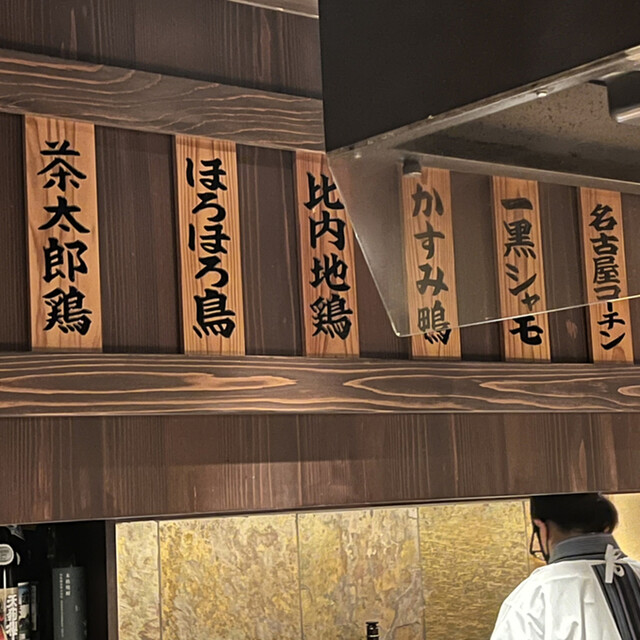 茶太郎鶏
ほろほろ鳥
比内地鶏
かすみ鴨
一黒シャモ
名古屋コーチン